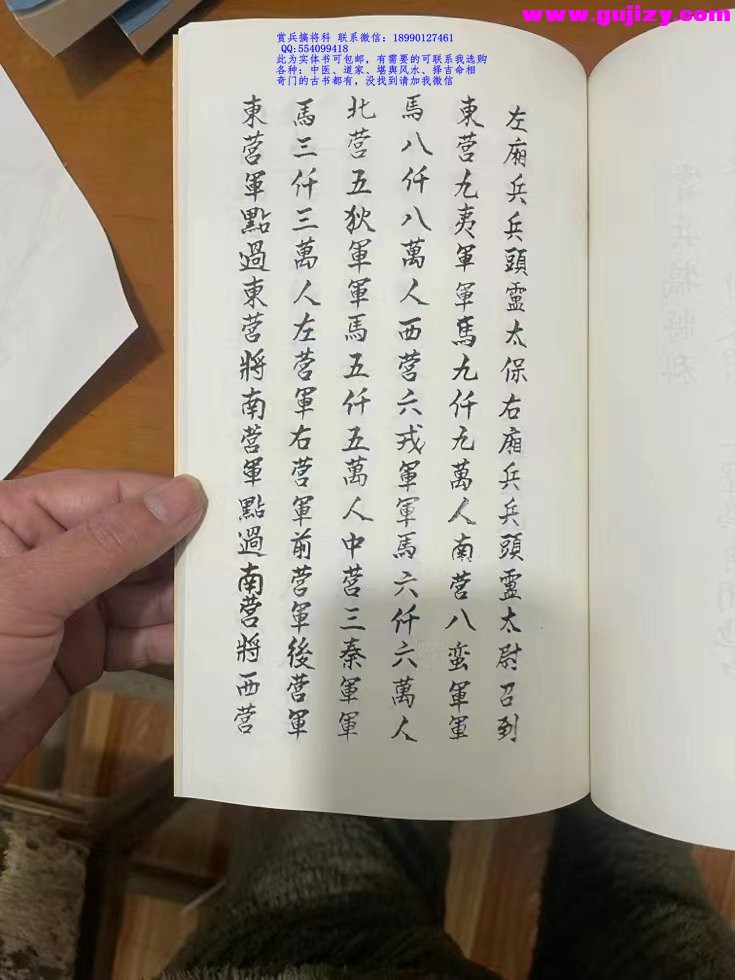 www.gujizy.com
赏兵搞将科 联系微信：18990127461
QQ:554099418
此为实体书可包邮，有需要的可联系我选购
各种：中医、道家、堪舆风水、择吉命相
奇门的古书都有，没找到请加我微信
左廂兵兵頭靈太保右廂兵兵頭靈太尉召到
東营九夷軍軍馬九仟九萬人南营八蛮軍軍
馬八仟八萬人西营六戎軍軍馬六仟六萬人
北营五狄軍軍馬五仟五萬人中营三秦軍軍
馬三仟三萬人左营軍右营軍前营軍後营軍
東营軍點過東营將南营軍點過南营將西营